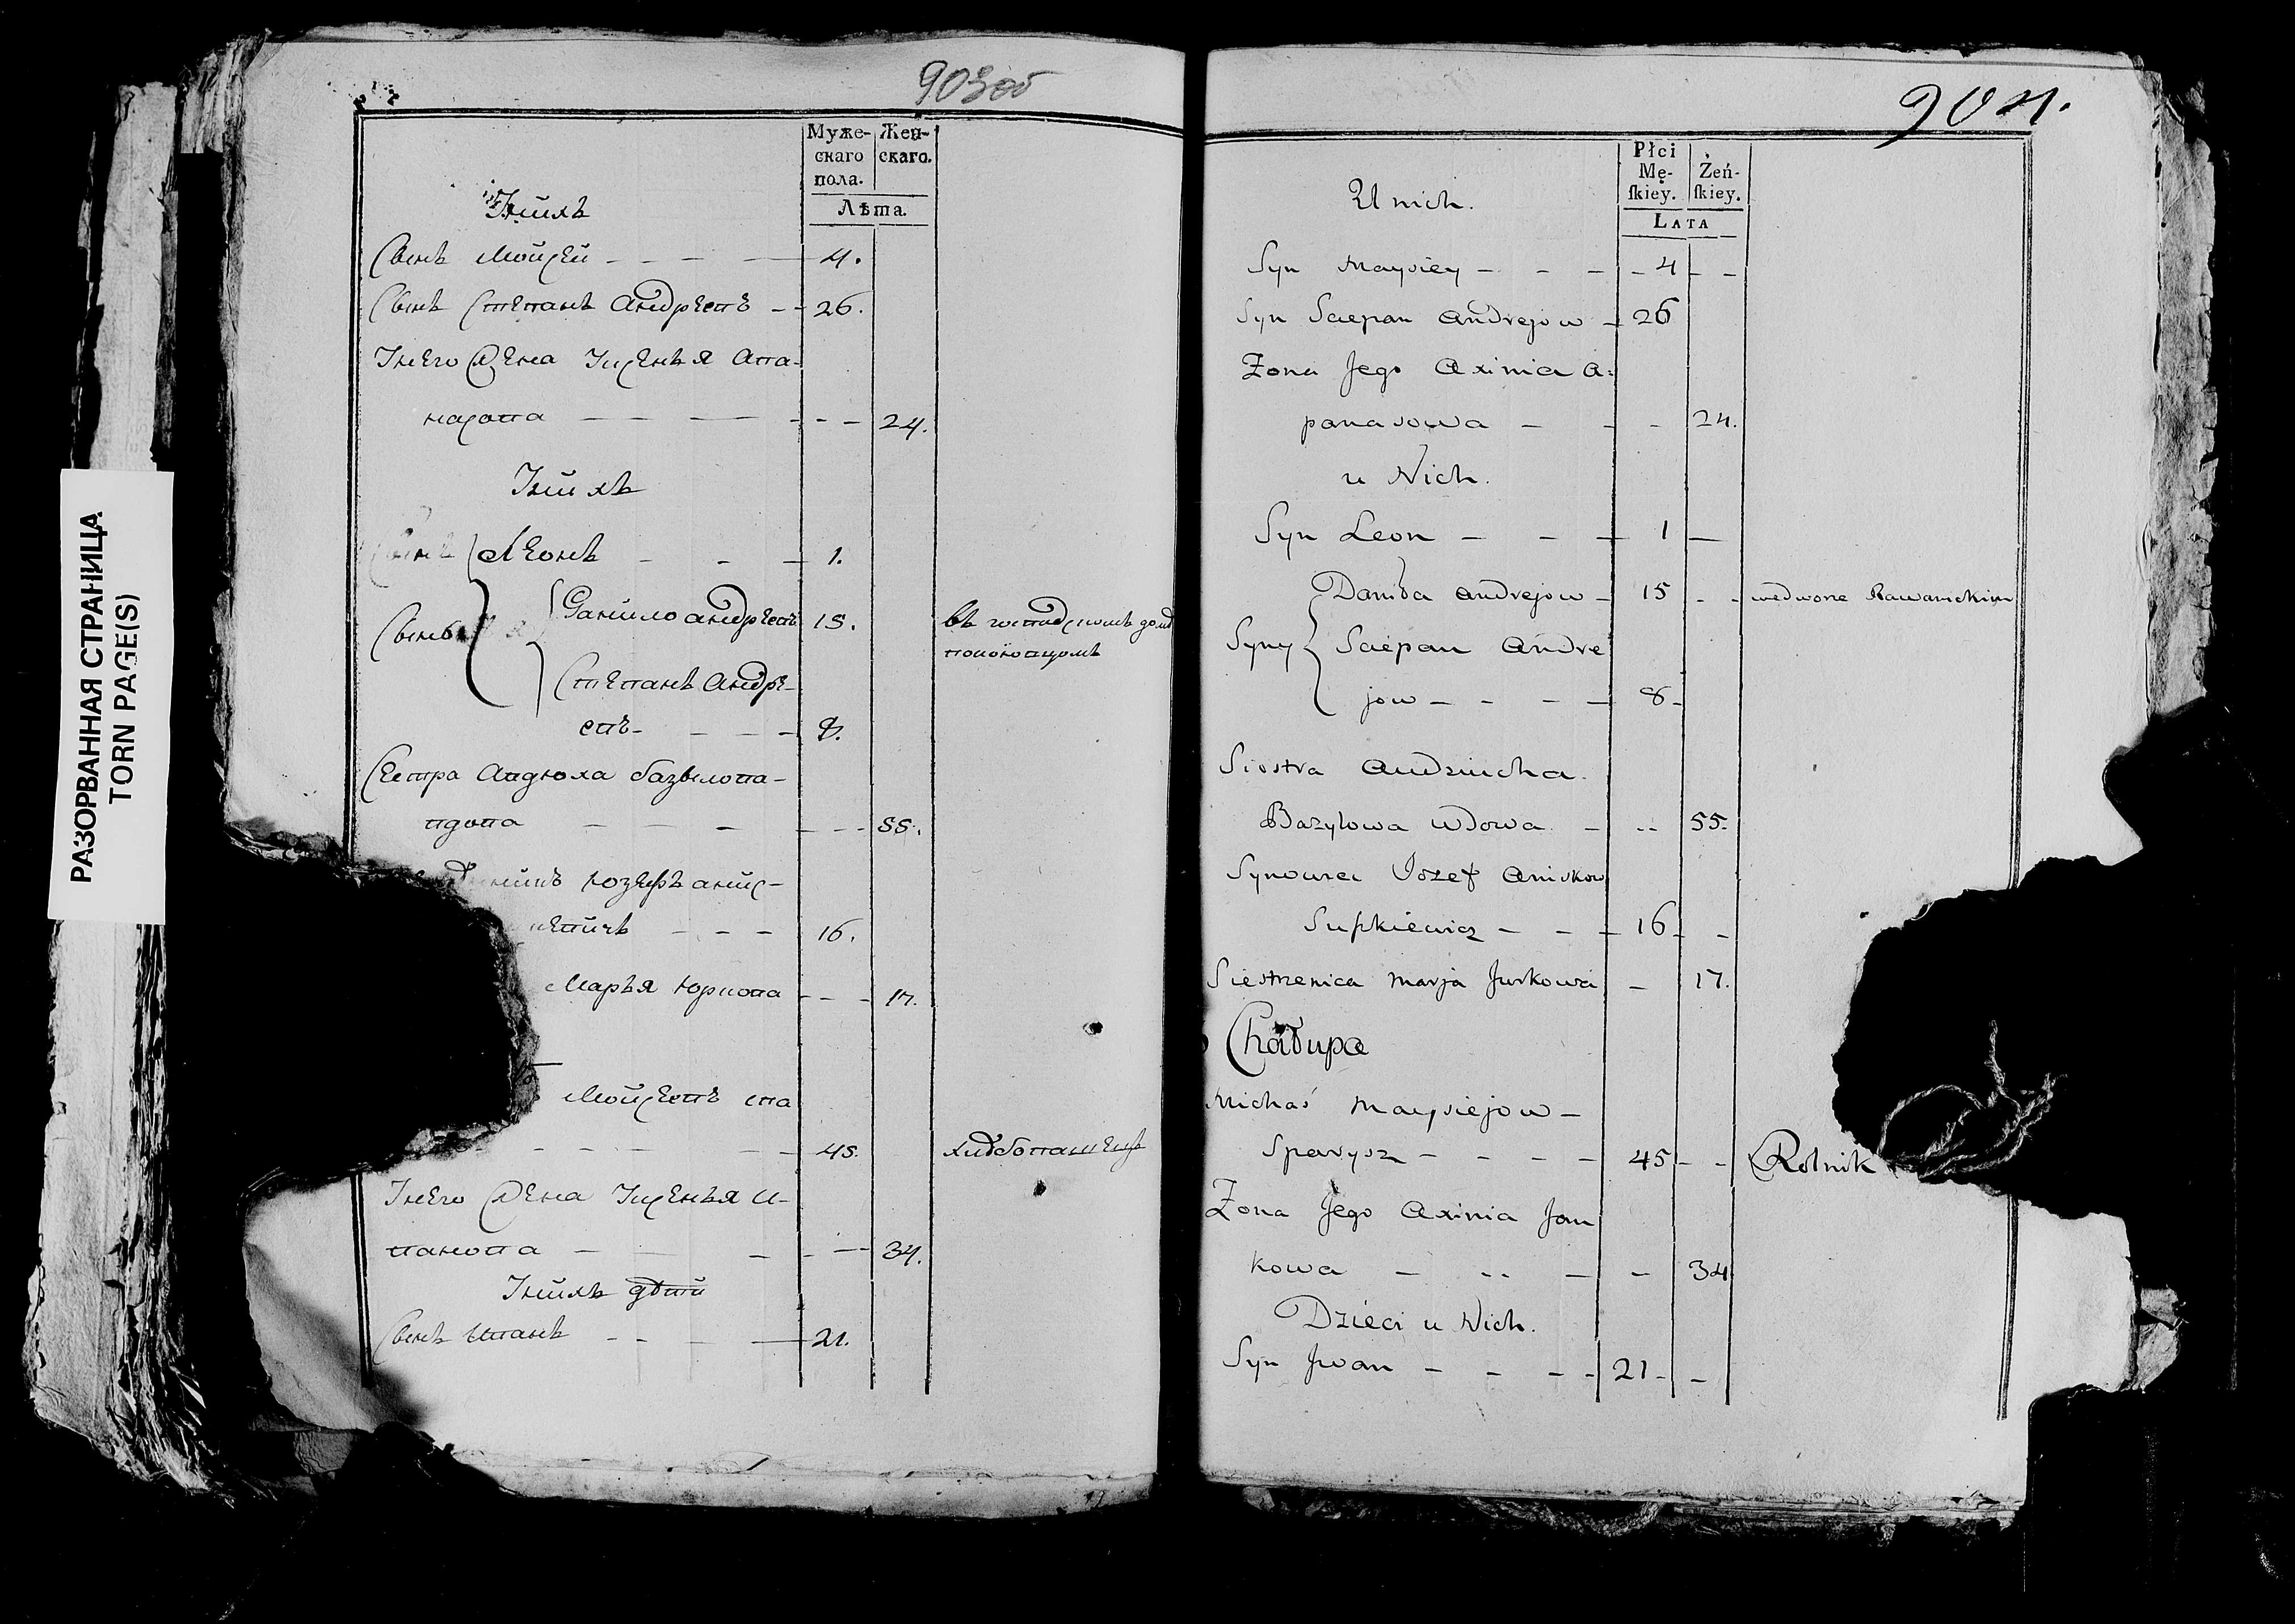 РАЗОРВАННАЯ СТРАНИЦА
TORN PAGE(S)
903об
Муже-
скаго
пола.
Жен-
скаго.
Лѣта.
Унихъ
Сынъ Мойсей - - - - 4.
Сынъ Степанъ Андреевъ - - 26.
Унего Жена Ксенья Апа-
насова - - - - 24.
Унихъ
Сынъ Леонъ - - - 1.
Сынъ Данило андреевъ 15. въ господскомъ домѣ
покоювцомъ
Степанъ Андре-
евъ - - - - 8.
Сестра Авдюха базылова-
вдова - - - - 55.
Юзефъ анис-
кевичъ - - - 16.
Марья Юркова - - - 17.
Мойсеевъ спа
- - - - 45. хлебопашецъ
Унего Жена Ксенья и-
ванова - - - - 34.
Унихъ дѣти
Сынъ Иванъ - - - - 21.
904.
Płci
Mę-
ſkiey.
Żeń-
ſkiey.
LATA
U nich.
Syn Maysiey - - - - 4 - -
Syn Sciepan Andrejow - 26
Zona Jego Axinia A:
panasowa - - - 24.
u Nich.
Syn Leon - - - 1 -
Daniła Andrejow - 15 - - wedworze
Syny Sciepan Andre
jow - - - - 8 -
Siostra Audziucha.
Bazylowa Wdowa - - - 55.
Synowiec Jozef Aniskow
Supkiewicz - - - 16 - -
Siestrzenica Marja Jurkowa - 17.
Chałupa
Michaś Maysiejow -
Sparysz - - - - 45 - - Rolnik
Zona Jego Axinia Jan
kowa - - - - 34
Dzieci u Nich.
Syn Jwan - - - - 21 - -